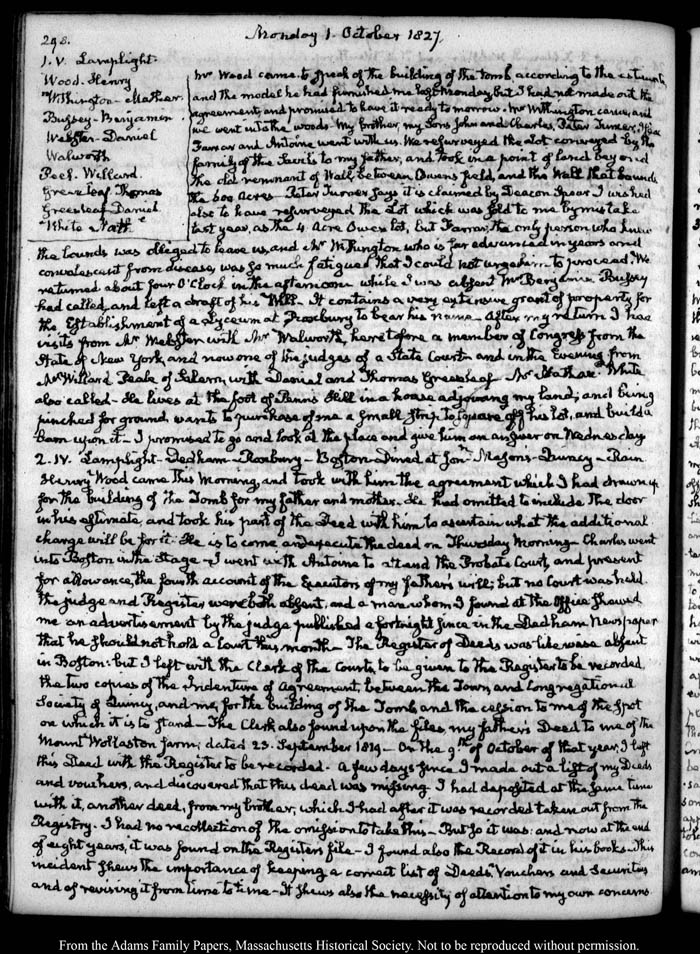 298.
Monday 1. October 1827.
1. V. Lamplight.
Wood. Henry
Withington-Mather.
Bussey-Benjamin.
Webster-Daniel
Walworth
Peele. Willard.
Greenleaf Thomas
Greenleaf-Daniel
White Nathl.
Mr Wood came to speak of the building of the tomb, according to the estimate
and the model he had furnished me last Monday, but I had not made out the
agreement, and promised to have it ready to morrow. Mr Withington came, and
we went into the woods. My brother, my Sons John and Charles, Peter Turner,
Farrar and Antoine went with us. We resurveyed the Lot conveyed by the
family of the Savils to my father, and took in a point of land beyond
the old remnant of Wall, between Owens field, and the Wall that bounds
the 600 Acres. Peter Turner says it is claimed by Deacon Spear. I wished
also to have resurveyed the Lot which was sold to me by mistake
last year, as the 4 Acre Owen lot, but Farrar, the only person who knew
the bounds was obliged to leave us, and Mr Withington who is far advanced in years and
convalescent from disease, was so much fatigued that I could not urge him to proceed. We
returned about four O'Clock in the afternoon while I was absent Mr Benjamin Bussey
had called, and left a draft of his Will. It contains a very extensive grant of property for
the Establishment of a Lyceum at Roxbury to bear his name. After my return I had
visits from Mr Webster with Mr Walworth, heretofore a member of Congress from the
State of New York, and now one of the judges of a State Court and in the Evening from
Mr Willard Peele of Salem, with Daniel and Thomas Greenleaf. Mr Nathan White
also called. He lives at the foot of Penn's Hill in a house adjoining my land; and being
pinched for ground wants to purchase of me a small strip to square off his lot, and build a
barn upon it. I promised to go and look at the place and give him an answer on Wednesday
2. IV. Lamplight-Dedham-Roxbury-Boston-Dined at Jona. Masons-Quincy-Rain
Henry Wood came this Morning, and took with him the agreement which I had drawn up
for the building of the Tomb for my father and mother. He had omitted to include the door
in his estimate, and took his part of the Deed with him to ascertain what the additional
charge will be for it. He is to come and execute the deed on Thursday Morning-Charles went
into Boston in the Stage-I went with Antoine to attend the Probate Court, and present
for allowance, the fourth account of the Executors of my father's will; but no Court was held.
the judge and Register were both absent, and a man whom I found at the Office shewed
me an advertisement by the judge published a fortnight since in the Dedham Newspaper
that he should not hold a Court this month. The Register of Deeds was likewise absent
in Boston: but I left with the Clerk of the Courts, to be given to the Register to be recorded,
the two copies of the Indenture of Agreement, between the Town, and Congregational
Society of Quincy, and me, for the building of the Tomb and the cession to me of the spot
on which it is to stand-The Clerk also found upon the files, my father's Deed to me of the
Mount Wollaston farm, dated 23. September 1819-On the 9th of October of that year, I left
this Deed with the Register to be recorded. A few days since I made out a list of my Deeds
and vouchers, and discovered that this deed was missing. I had deposited at the same time
with it, another deed, from my brother, which I had after it was recorded taken out from the
Registry. I had no recollection of the omission to take this-But so it was: and now at the end
of eight years, it was found on the Registers file-I found also the Record of it in his books. This
incident shews the importance of keeping a correct list of Deeds, Vouchers and Securities
and of revising it from time to time-It shews also the necessity of attention to my own concerns.
From the Adams Family Papers, Massachusetts Historical Society. Not to be reproduced without permission.